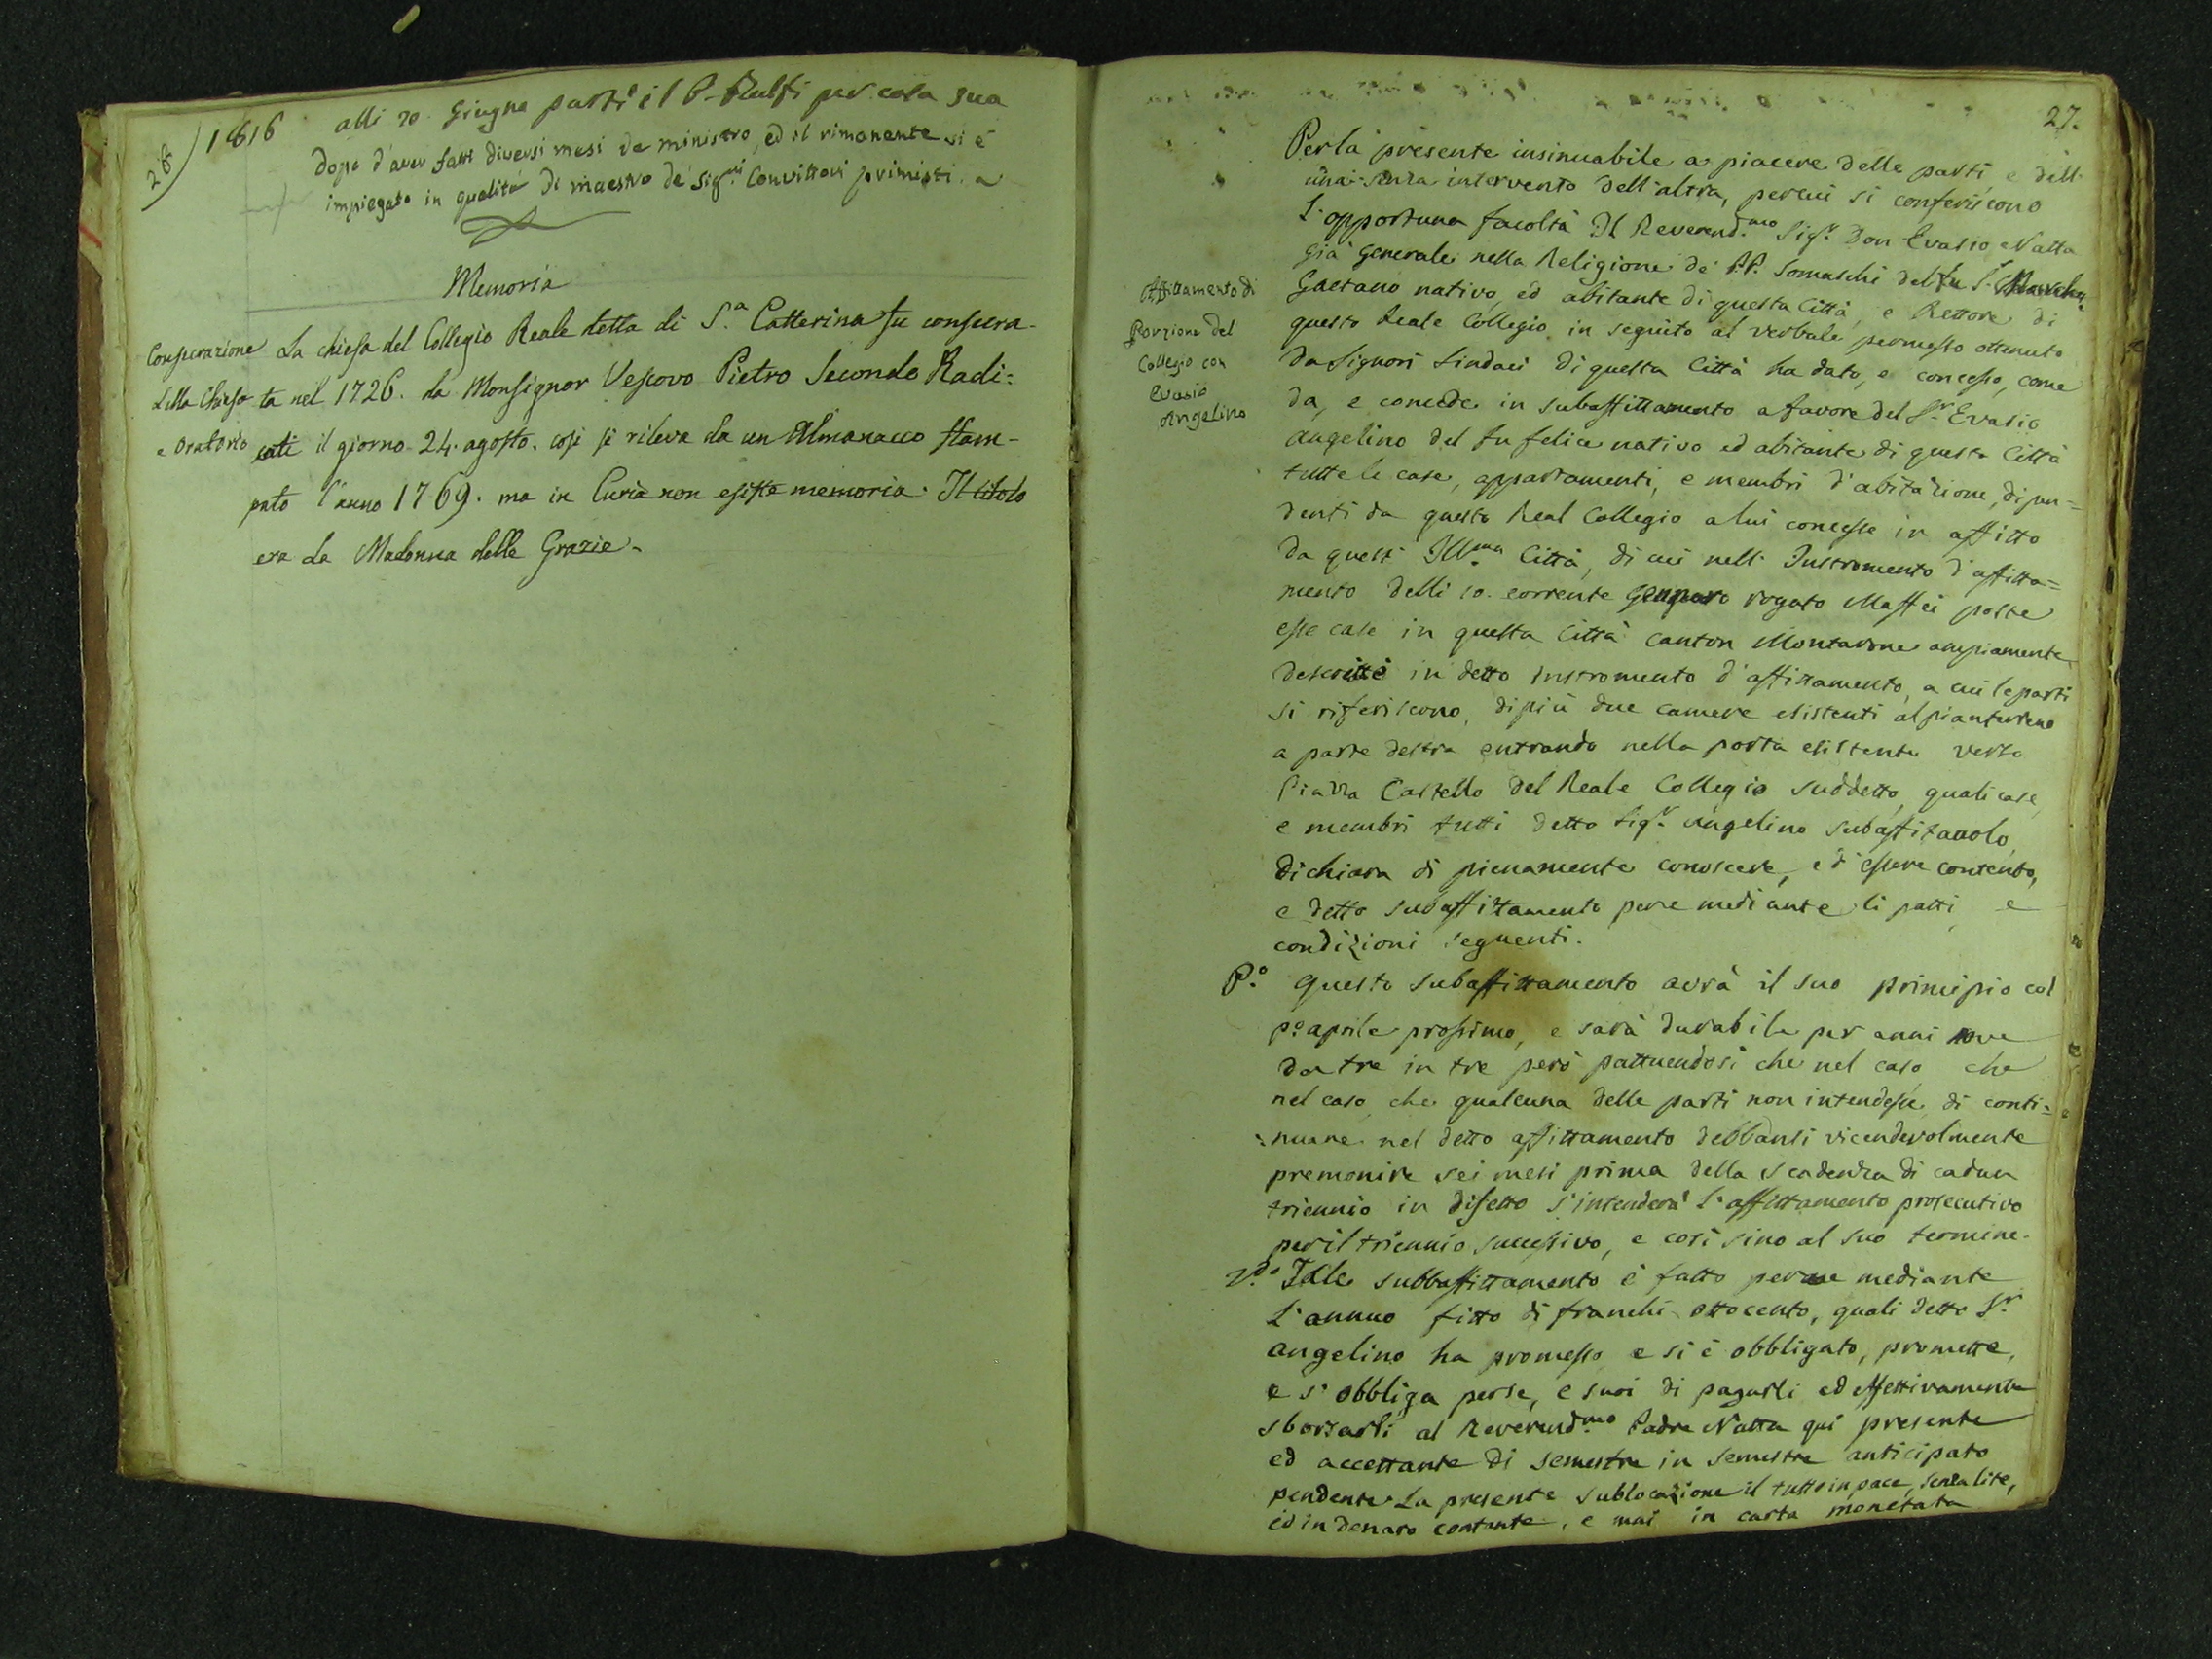 26) 1816 alli 20. Giugno partì il P. Rulfi per casa sua
dopo d'aver fatti diversi mesi da ministro, ed il rimanente si è
impiegato in qualità di maestro de' Sig.ri Convittori primisti.
Memoria
Consecrazione
della Chiesa
e Oratorio
La chiesa del Collegio Reale detta di S.a Catterina fu consecra-
ta nel 1726. da Monsignor Vescovo Pietro Secondo Radi=
cati il giorno 24. agosto. così si rileva da un Almanacco stam-
pato l'anno 1769. ma in Curia non esiste memoria. Il titolo
era La Madonna delle Grazie.
27.
Affittamento di
Porzione del
Collegio con
Evasio
Angelino
Per la presente insinuabile a piacere delle parti, e dell'
una senza intervento dell'altra, per cui si conferiscono
l'opportuna facoltà Il Reverend.mo Sig.r Don Evasio Natta
già Generale nella Religione de' P.P. Somaschi del fu S.r
Gaetano nativo, ed abitante di questa Città, e Rettore di
questo Reale Collegio in seguito al verbale permesso ottenuto
da Signori Sindaci di questa Città ha dato, e concesso, come
da, e concede in subaffittamento a favore del S.r Evasio
Angelino del fu felice nativo ed abitante di questa Città
tutte le case, appartamenti, e membri d'abitazione, dipen=
denti da questo Real Collegio a lui concesse in affitto
da quest' Ill.ma Città, di cui nell' Instromento d'affitta=
mento delli 10. corrente Gennaro rogato Maffei poste
esse case in questa Città canton Montarone ampiamente
descritte in detto Instromento d'affittamento, a cui le parti
si riferiscono, di più due camere esistenti al pian terreno
a parte destra entrando nella porta esistente verso
Piazza Castello del Reale Collegio suddetto, quali case,
e membri tutti detto Sig.r Angelino subaffitavolo
dichiara di pienamente conoscere, ed essere contento,
e detto subaffittamento pure mediante li patti e
condizioni seguenti.
P.o Questo subaffittamento avrà il suo principio col
p.o aprile prossimo, e sarà durabile per anni nove
da tre in tre però pattuendosi che nel caso che
nel caso che qualcuna delle parti non intendesse di conti=
=nuare nel detto affittamento debbansi vicendevolmente
premonire sei mesi prima della scadenza di cadun
triennio in difetto s'intenderà l'affittamento prosecutivo
per il triennio successivo, e così sino al suo termine.
2.do Tale subbaffittamento è fatto mediante
l'annuo fitto di franchi ottocento, quali detto S.r
Angelino ha promesso e si è obbligato, promette,
e s'obbliga per se, e suoi di pagarli ed effettivamente
sborzarli al Reverend.mo Padre Natta qui presente
ed accettante di semestre in semestre anticipato
pendente La presente sublocazione il tutto in pace, senza lite,
ed in denaro contante, e mai in carta monetata